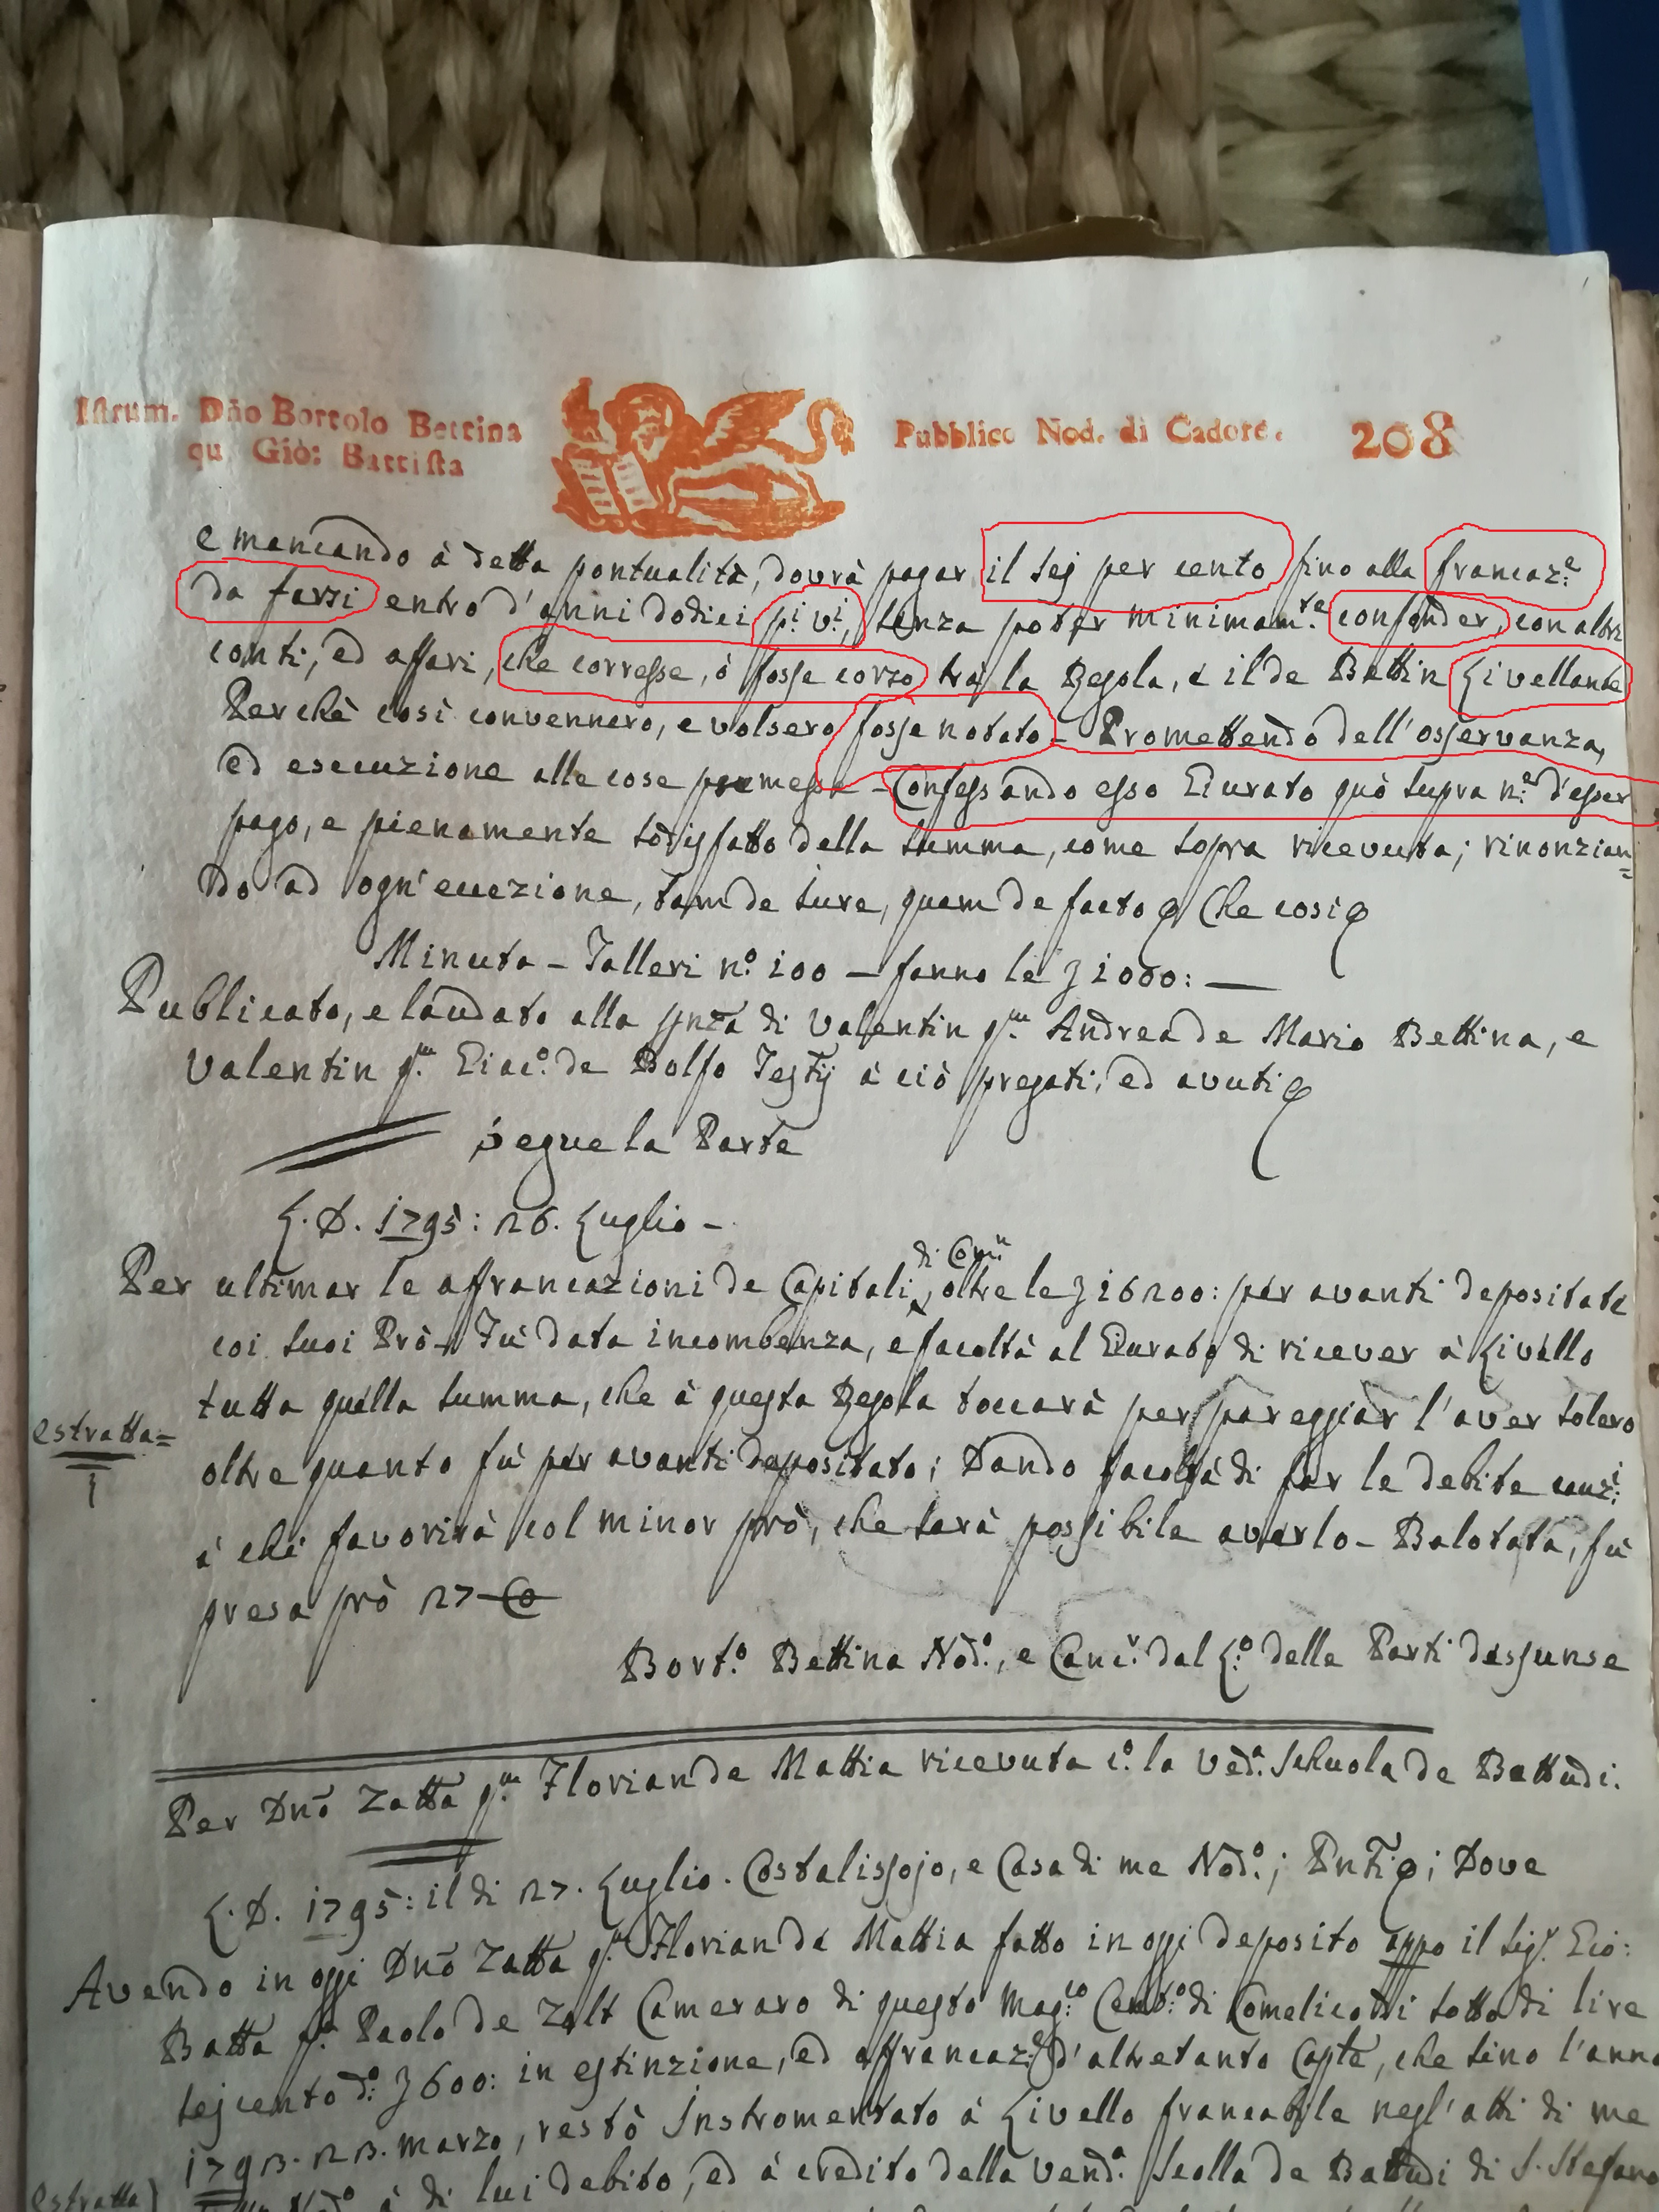 Istrum. Dño Bortolo Bettina
qu Giò: Battista
Pubblico Nod. di Cadore.
208
e mancando à detta pontualità, dovrà pagar il sej per cento fino alla francaz.e
da farsi entro d'anni dodici p.i v.i, senza poter minimam.te confonder, con altri
conti, ed affari, che corresse, ò fosse corzo trà la Regola, e il de Bettin Livellante
Perchè così convennero, e volsero fosse notato - Promettendo dell'osservanza,
ed esecuzione alle cose premesse - Confessando esso Giurato quò supra n.e d'esser
pago, e pienamente sodisfatto della summa, come sopra ricevuta; rinonzian=
do ad ogn'eccezione, tam de iure, quam de facto Che così
Minuta - Talleri n.o 100 - fanno le 1000: —
Publicato, e laudato alla pnza di Valentin q.m Andrea de Mario Bettina, e
Valentin q.m Giac.o de Bolfo Testij à ciò pregati, ed avuti
Segue la Parte
L. D. 1795: 26. Luglio -
Per ultimar le affrancazioni de Capitali di Com, oltre le 16200: per avanti depositate
coi suoi Prò - Fù data incombenza, e facoltà al Giurato di ricever à Livello
tutta quella summa, che à questa Regola toccarà per pareggiar l'aver
estratta=
oltre quanto fù per avanti depositato; Dando facoltà di far le debite cauz.i
à chi favorirà col minor prò, che sarà possibile averlo - Balotata, fù
presa prò 27 - Co
Bort.o Bettina Nod.o, e Canc.r dal L.o delle Parti dessunse
Per Dno Zatta q.m Florian de Mattia ricevuta c.o la Ved.a Schuola de Battudi.
L. D. 1795: il di 27. Luglio. Costalissojo, e Casa di me Nod.o; Pnti; Dove
Avendo in oggi Dno Zatta q.m Florian de Mattia fatto in oggi deposito appo il Sig.r Giò:
Batta q.m Paolo de Zolt Cameraro di questo Mag.co Cent.o di Comelico di sotto di lire
sejcento d.o 600: in estinzione, ed affrancaz.e d'altretanto Caple, che sino l'anno
1793. 23. marzo, restò Instromentato à Livello francabile negl'atti di me
estratta
Nod.o à di lui debito, ed à credito della Vend.a Scolla de Battudi di S. Stefano